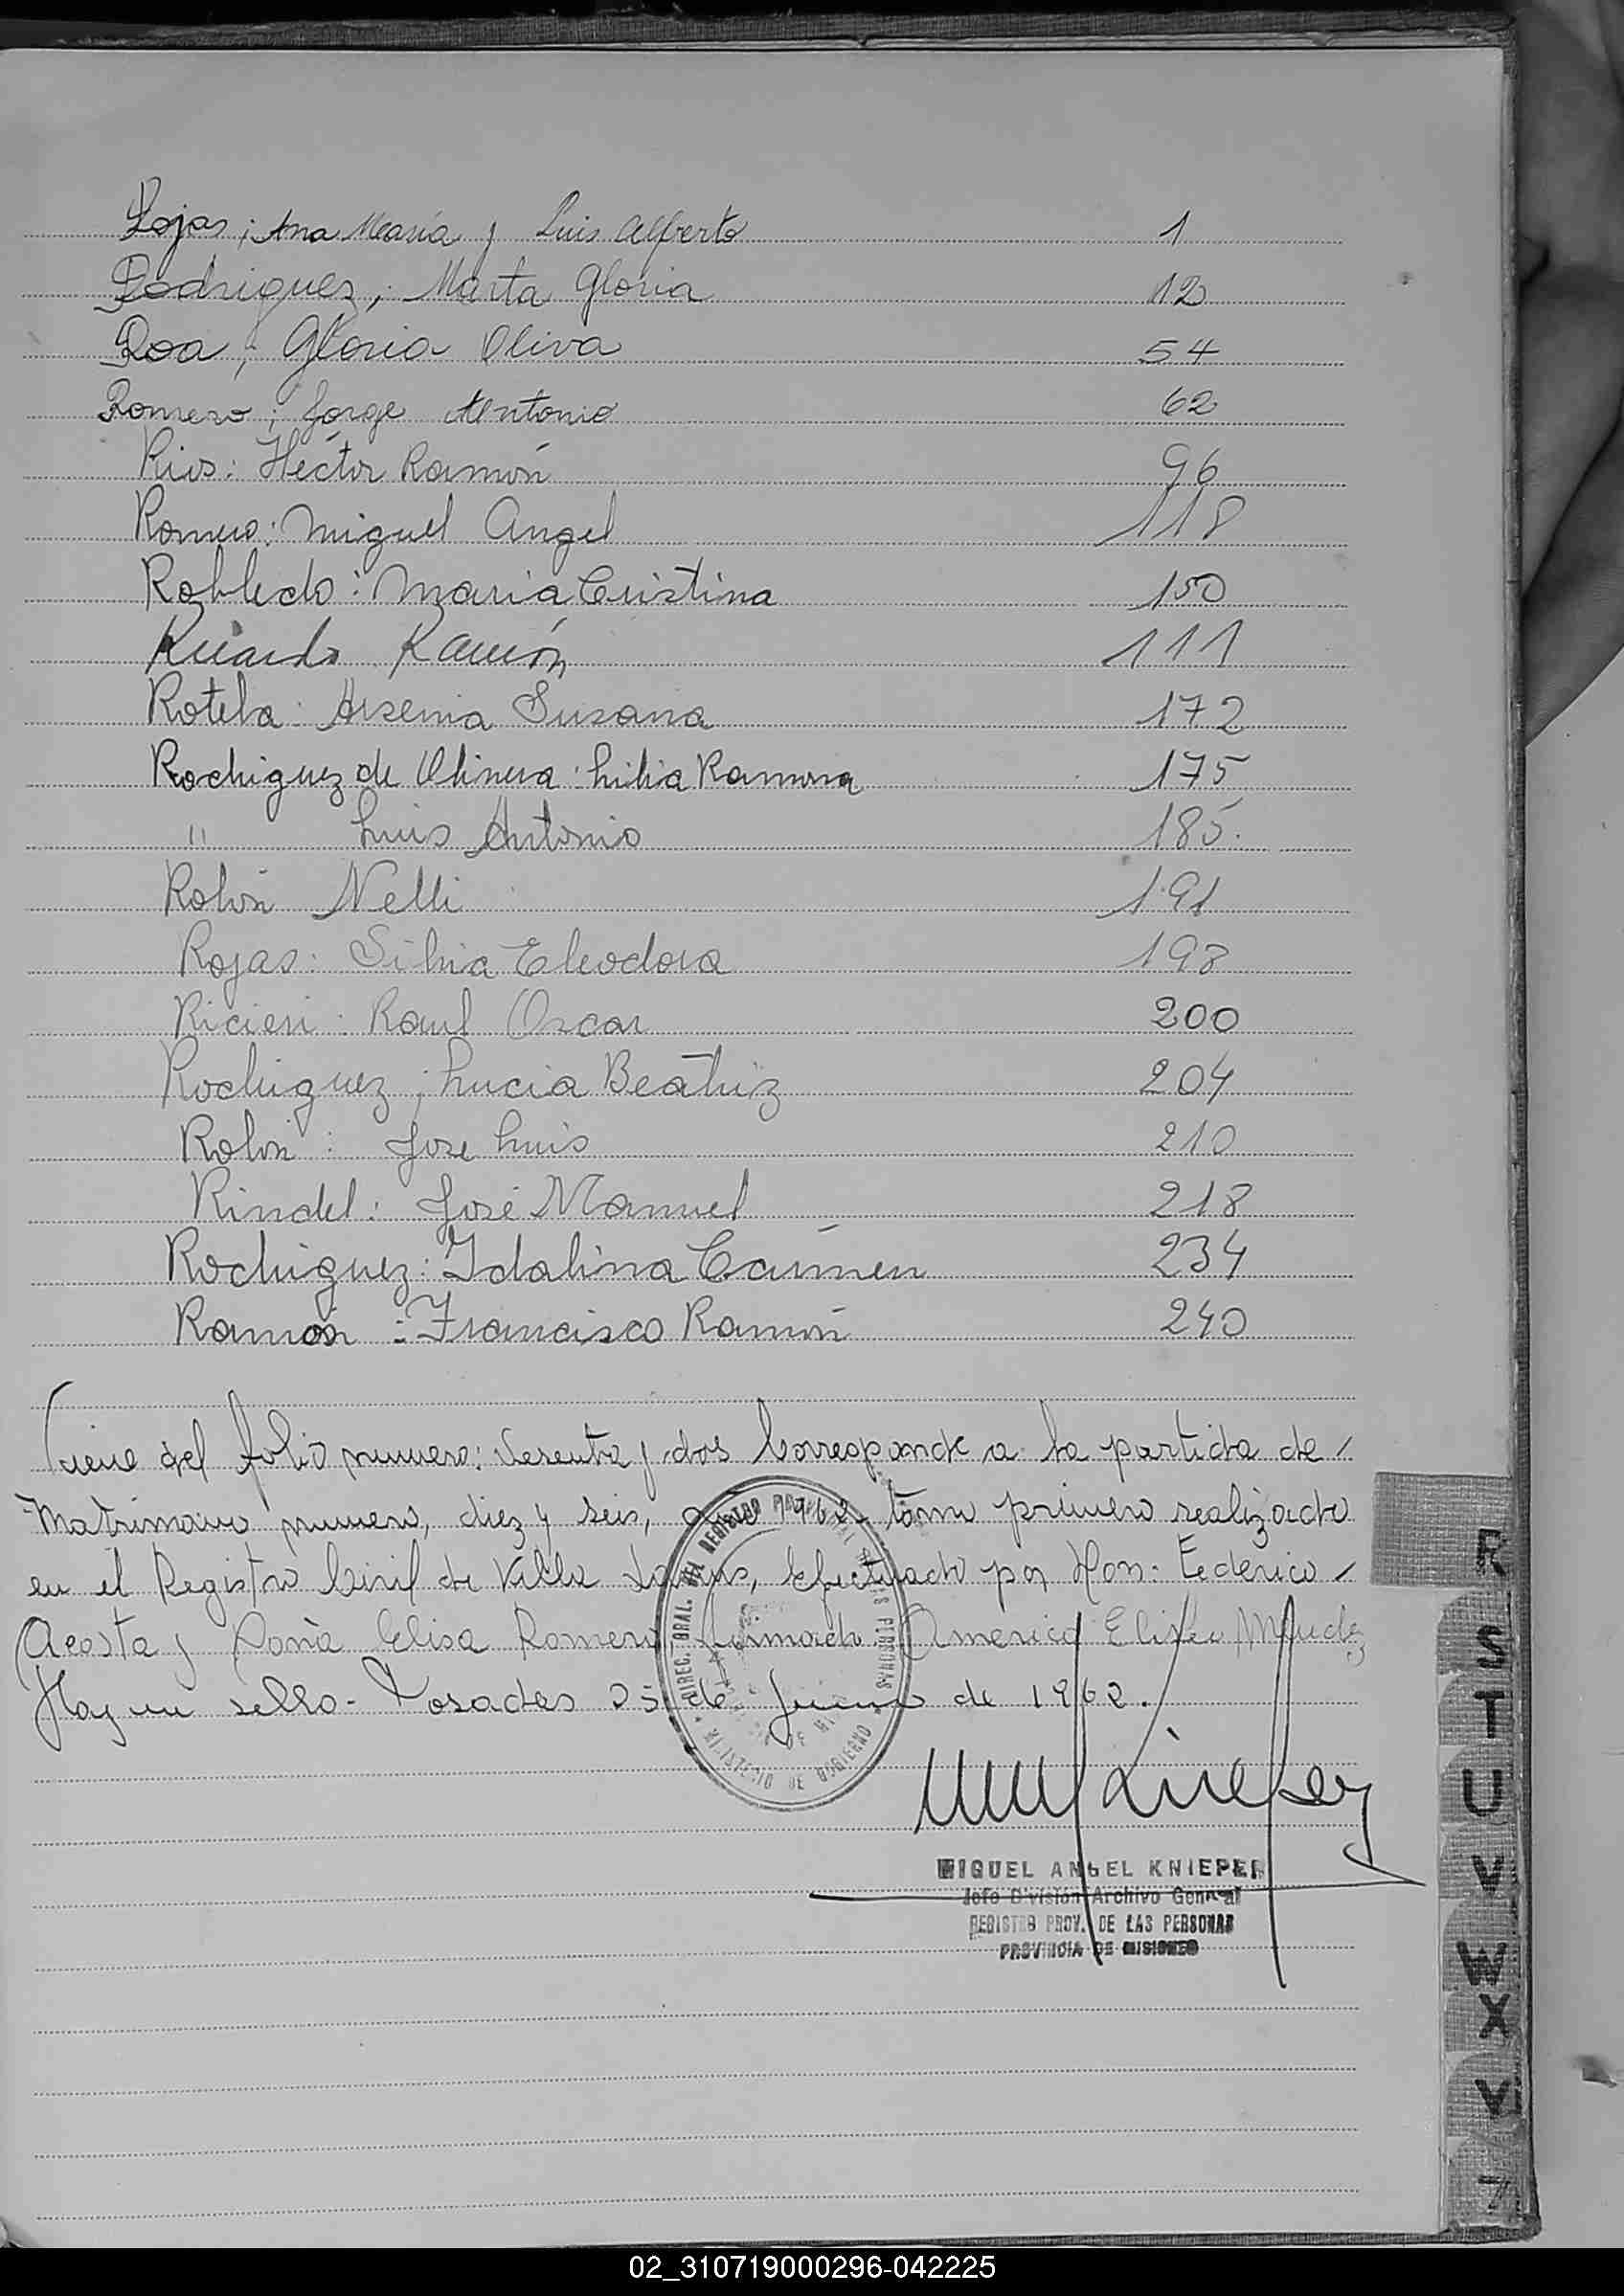 Rojas; Ana María y Luis Alberto 1
Rodriguez; Marta Gloria 12
Roa; Gloria Oliva 54
Romero; Jorge Antonio 62
Rios: Héctor Ramón 96
Romero: Miguel Angel 118
Robledo: Maria Cristina 150
Ricardo Ramón 111
Rotela: Arsenia Susana 172
Rodriguez de Olivera: Lilia Ramona 175
" Luis Antonio 185.
Rolón Nelli 191
Rojas: Silvia Eleodora 198
Ricieri: Raul Oscar 200
Rodriguez; Lucia Beatriz 204
Rolon: Jose Luis 210
Rindel: José Manuel 218
Rodriguez: Idalina Carmen 234
Ramón: Francisco Ramón 240
Viene del folio numero: Sesenta y dos Corresponde a la partida de
Matrimonio numero, diez y seis, año 1962 tomo primero realizado
en el Registro Civil de Villa Efectuado por Don: Federico
Acosta y Doña Elisa Romero, firmado America Eliseo Mendez
Hay un sello - Posadas 25 de Junio de 1962.
DIREC. GRAL. DEL REGISTRO PROVINCIAL DE LAS PERSONAS
MINISTERIO DE GOBIERNO
MIGUEL ANGEL KNIEPER
Jefe División Archivo General
REGISTRO PROV. DE LAS PERSONAS
PROVINCIA DE MISIONES
R
S
T
U
V
W
X
Y
Z
02_310719000296-042225